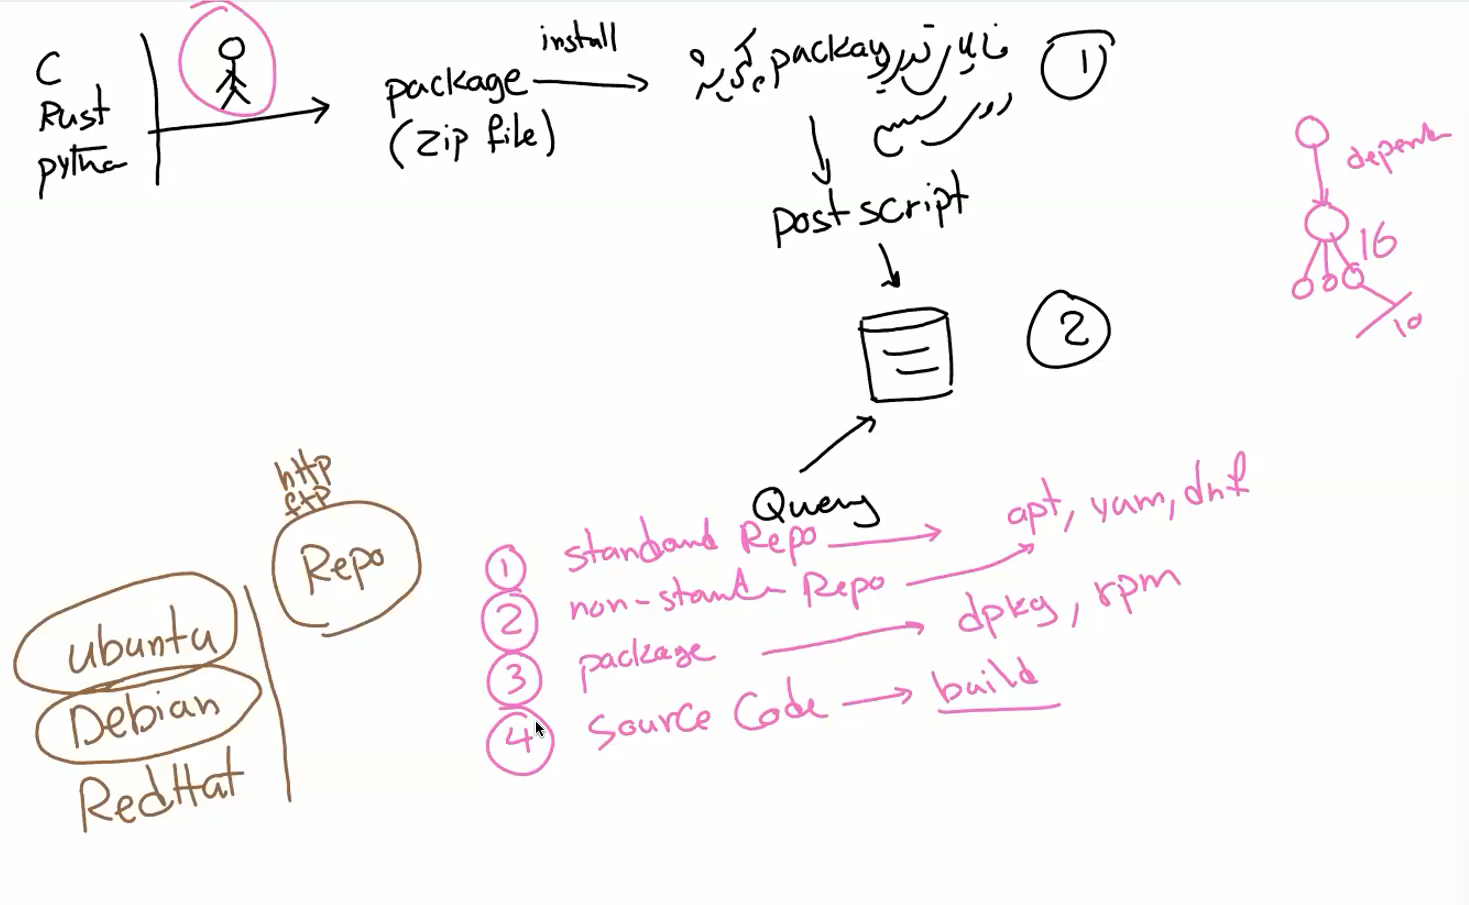 C
Rust
python
package
(zip file)
install
فایل از تو package
1
post script
2
Query
depend
16
10
http
ftp
Repo
ubuntu
Debian
RedHat
1 standard Repo → apt, yum, dnf
2 non-stand Repo
3 package → dpkg, rpm
4 Source Code → build